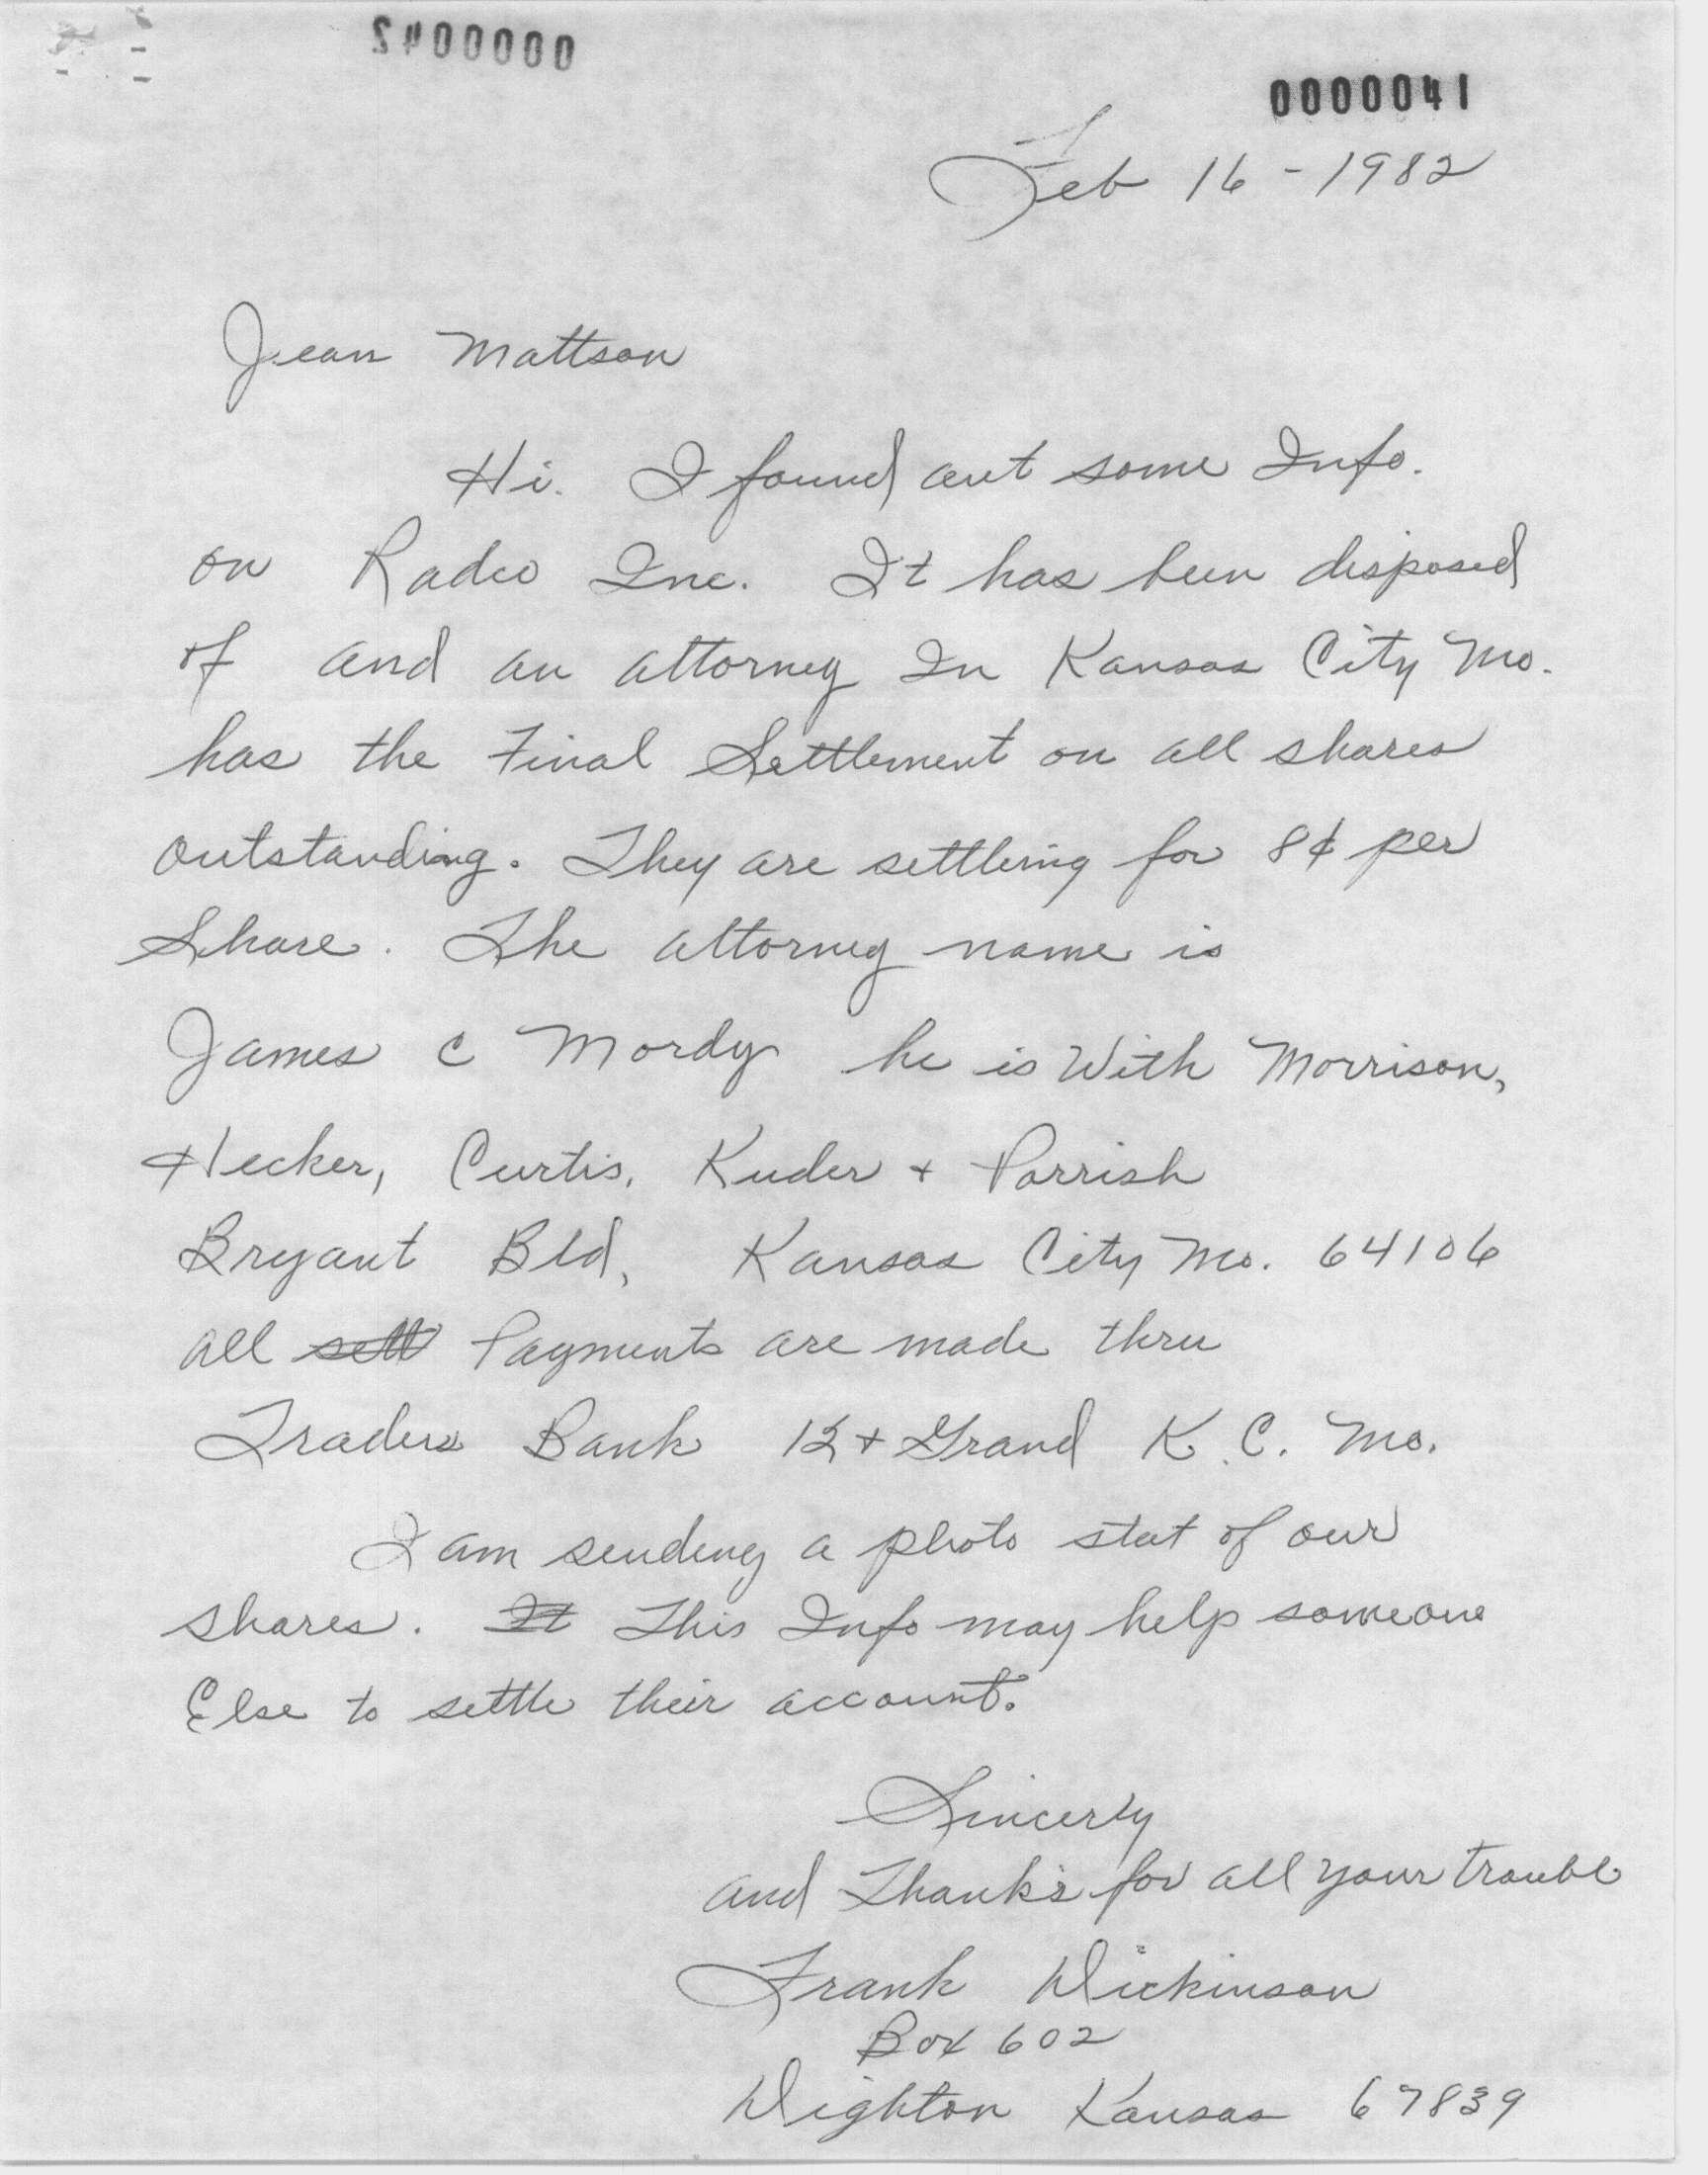 0000041
Feb 16 - 1982
Jean Mattson
Hi. I found out some Info.
on Radco Inc. It has been disposed
of and an attorney In Kansas City Mo.
has the Final Settlement on all shares
outstanding. They are settling for 8¢ per
Share. The attorney name is
James C Mordy he is With Morrison,
Hecker, Curtis, Kuder + Parrish
Bryant Bld, Kansas City Mo. 64106
all sett Payments are made thru
Traders Bank 12 + Grand K.C. Mo.
I am sending a photo stat of our
shares. It This Info may help someone
Else to settle their account.
Sincerly
and Thank's for all your trouble
Frank Dickinson
Box 602
Dighton Kansas 67839